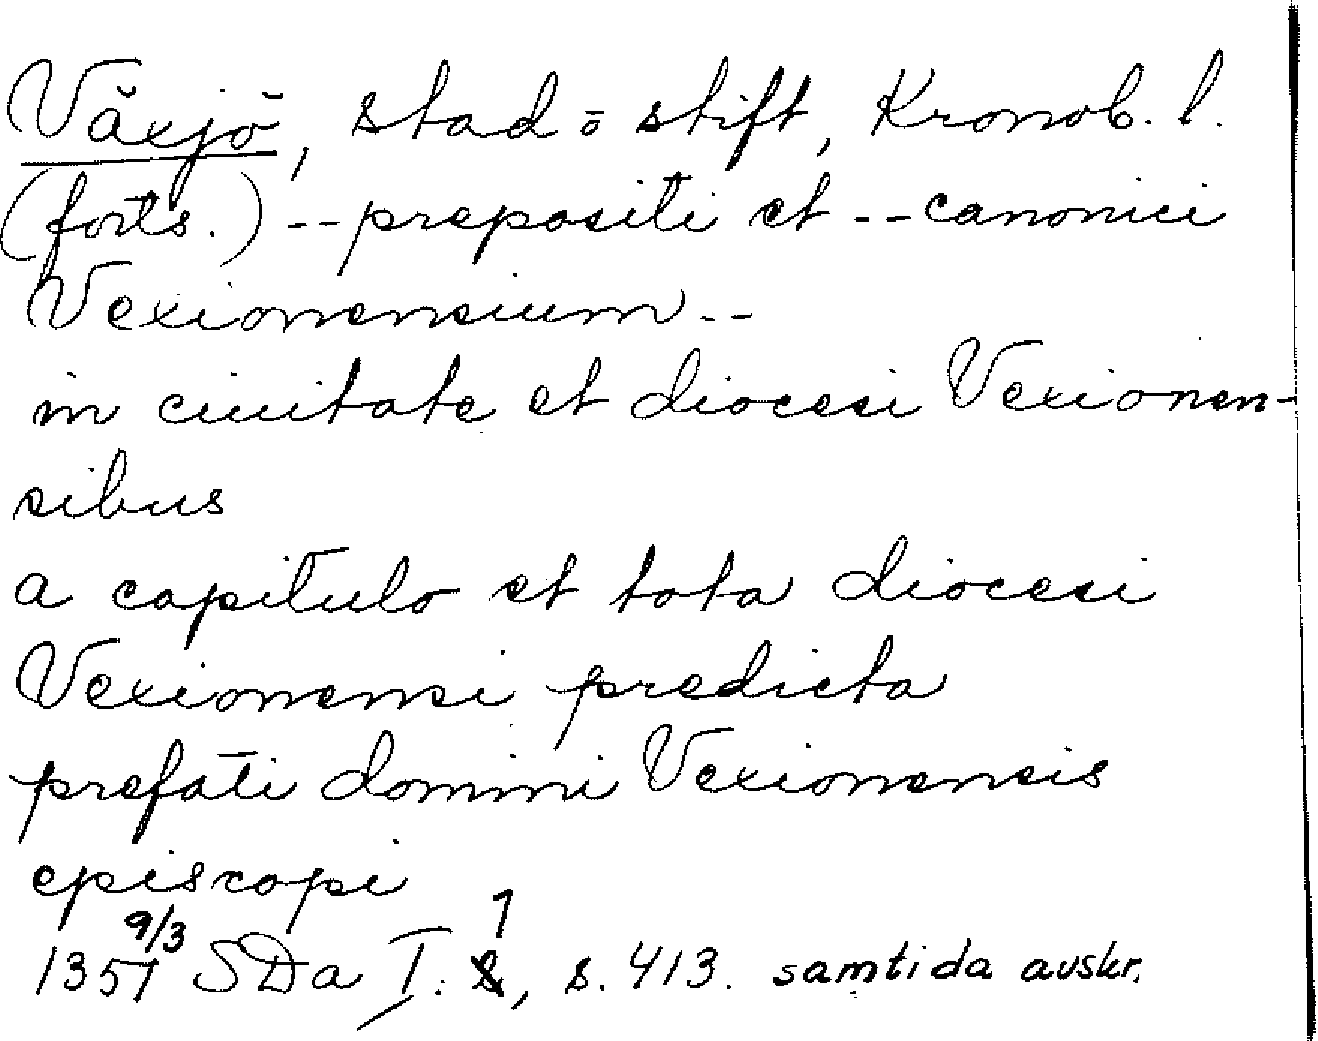 Växjö, stad o stift, Kronob. l.
(forts.) -- prepositi et -- canonici
Vexionensium --
in ciuitate et diocesi Vexionen-
sibus
a capitulo et tota diocesi
Vexionensi predicta
prefati domini Vexionensis
episcopi
1357 9/3 SDa I: 1, s. 413. samtida avskr.